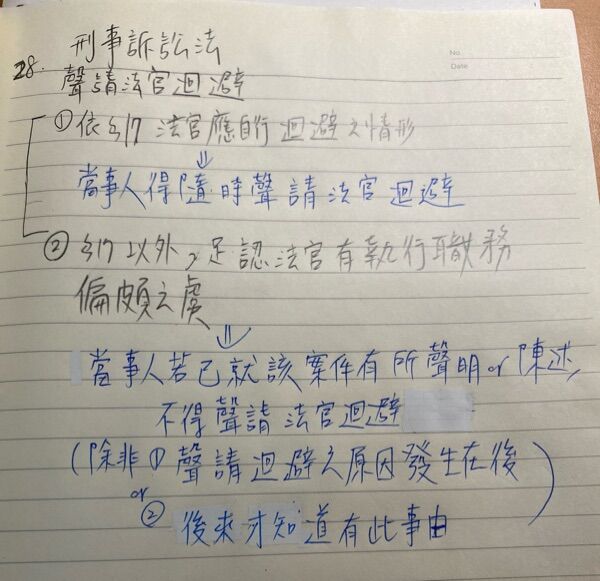 No.
Date
28. 刑事訴訟法
聲請法官迴避
① 依§17 法官應自行迴避之情形
⇓
當事人得隨時聲請法官迴避
② §17以外,足認法官有執行職務
偏頗之虞
⇓
當事人若已就該案件有所聲明or陳述,
不得聲請法官迴避
(除非①聲請迴避之原因發生在後
or
② 後來才知道有此事由)